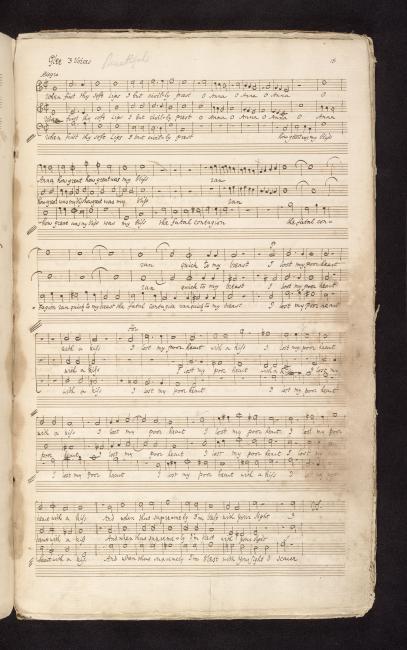 Glee 3 Voices Beautiful 18
Allegro
When first thy soft Lips I but civilly prest O Anna O Anna O Anna O
When first thy soft Lips I but civilly prest O Anna O Anna O Anna O
When first thy soft Lips I but civilly prest how great was my bliss
Anna how great how great was my bliss ran
how great was my bliss how great was my bliss ran
how great was my bliss was my bliss the fatal contagion the fatal con-
ran quick to my breast I lost my poor heart
ran quick to my breast I lost my poor heart
tagion ran quick to my breast the fatal contagion ran quick to my breast I lost my poor heart
For
with a kiss I lost my poor heart with a kiss I lost my poor heart
with a kiss I lost my poor heart with a kiss I lost my
with a kiss I lost my poor heart I lost my poor heart
with a kiss I lost my poor heart I lost my poor heart I lost my poor
poor heart I lost my poor heart I lost my poor heart I lost my
I lost my poor heart I lost my poor heart with a kiss I lost my
heart with a kiss And when thus supremely I'm blest with your sight I
heart with a kiss And when thus supremely I'm blest with your sight
heart with a kiss And when thus supremely I'm blest with your sight I scarce